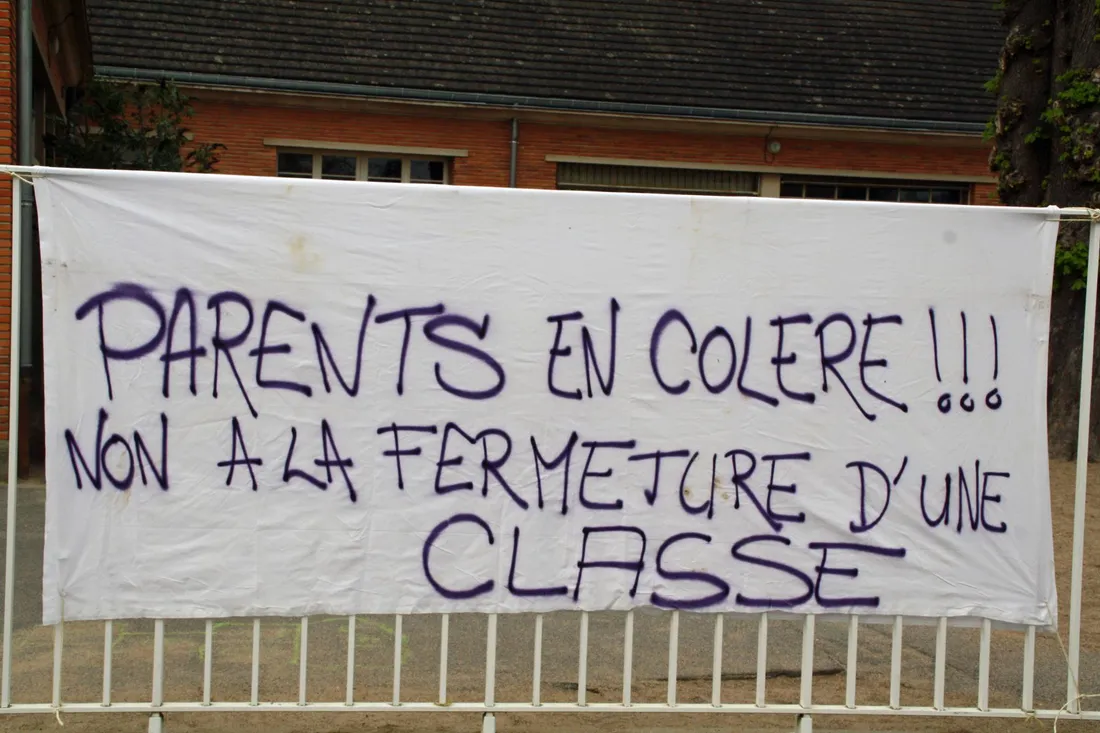 PARENTS EN COLERE !!!
NON A LA FERMETURE D'UNE
CLASSE